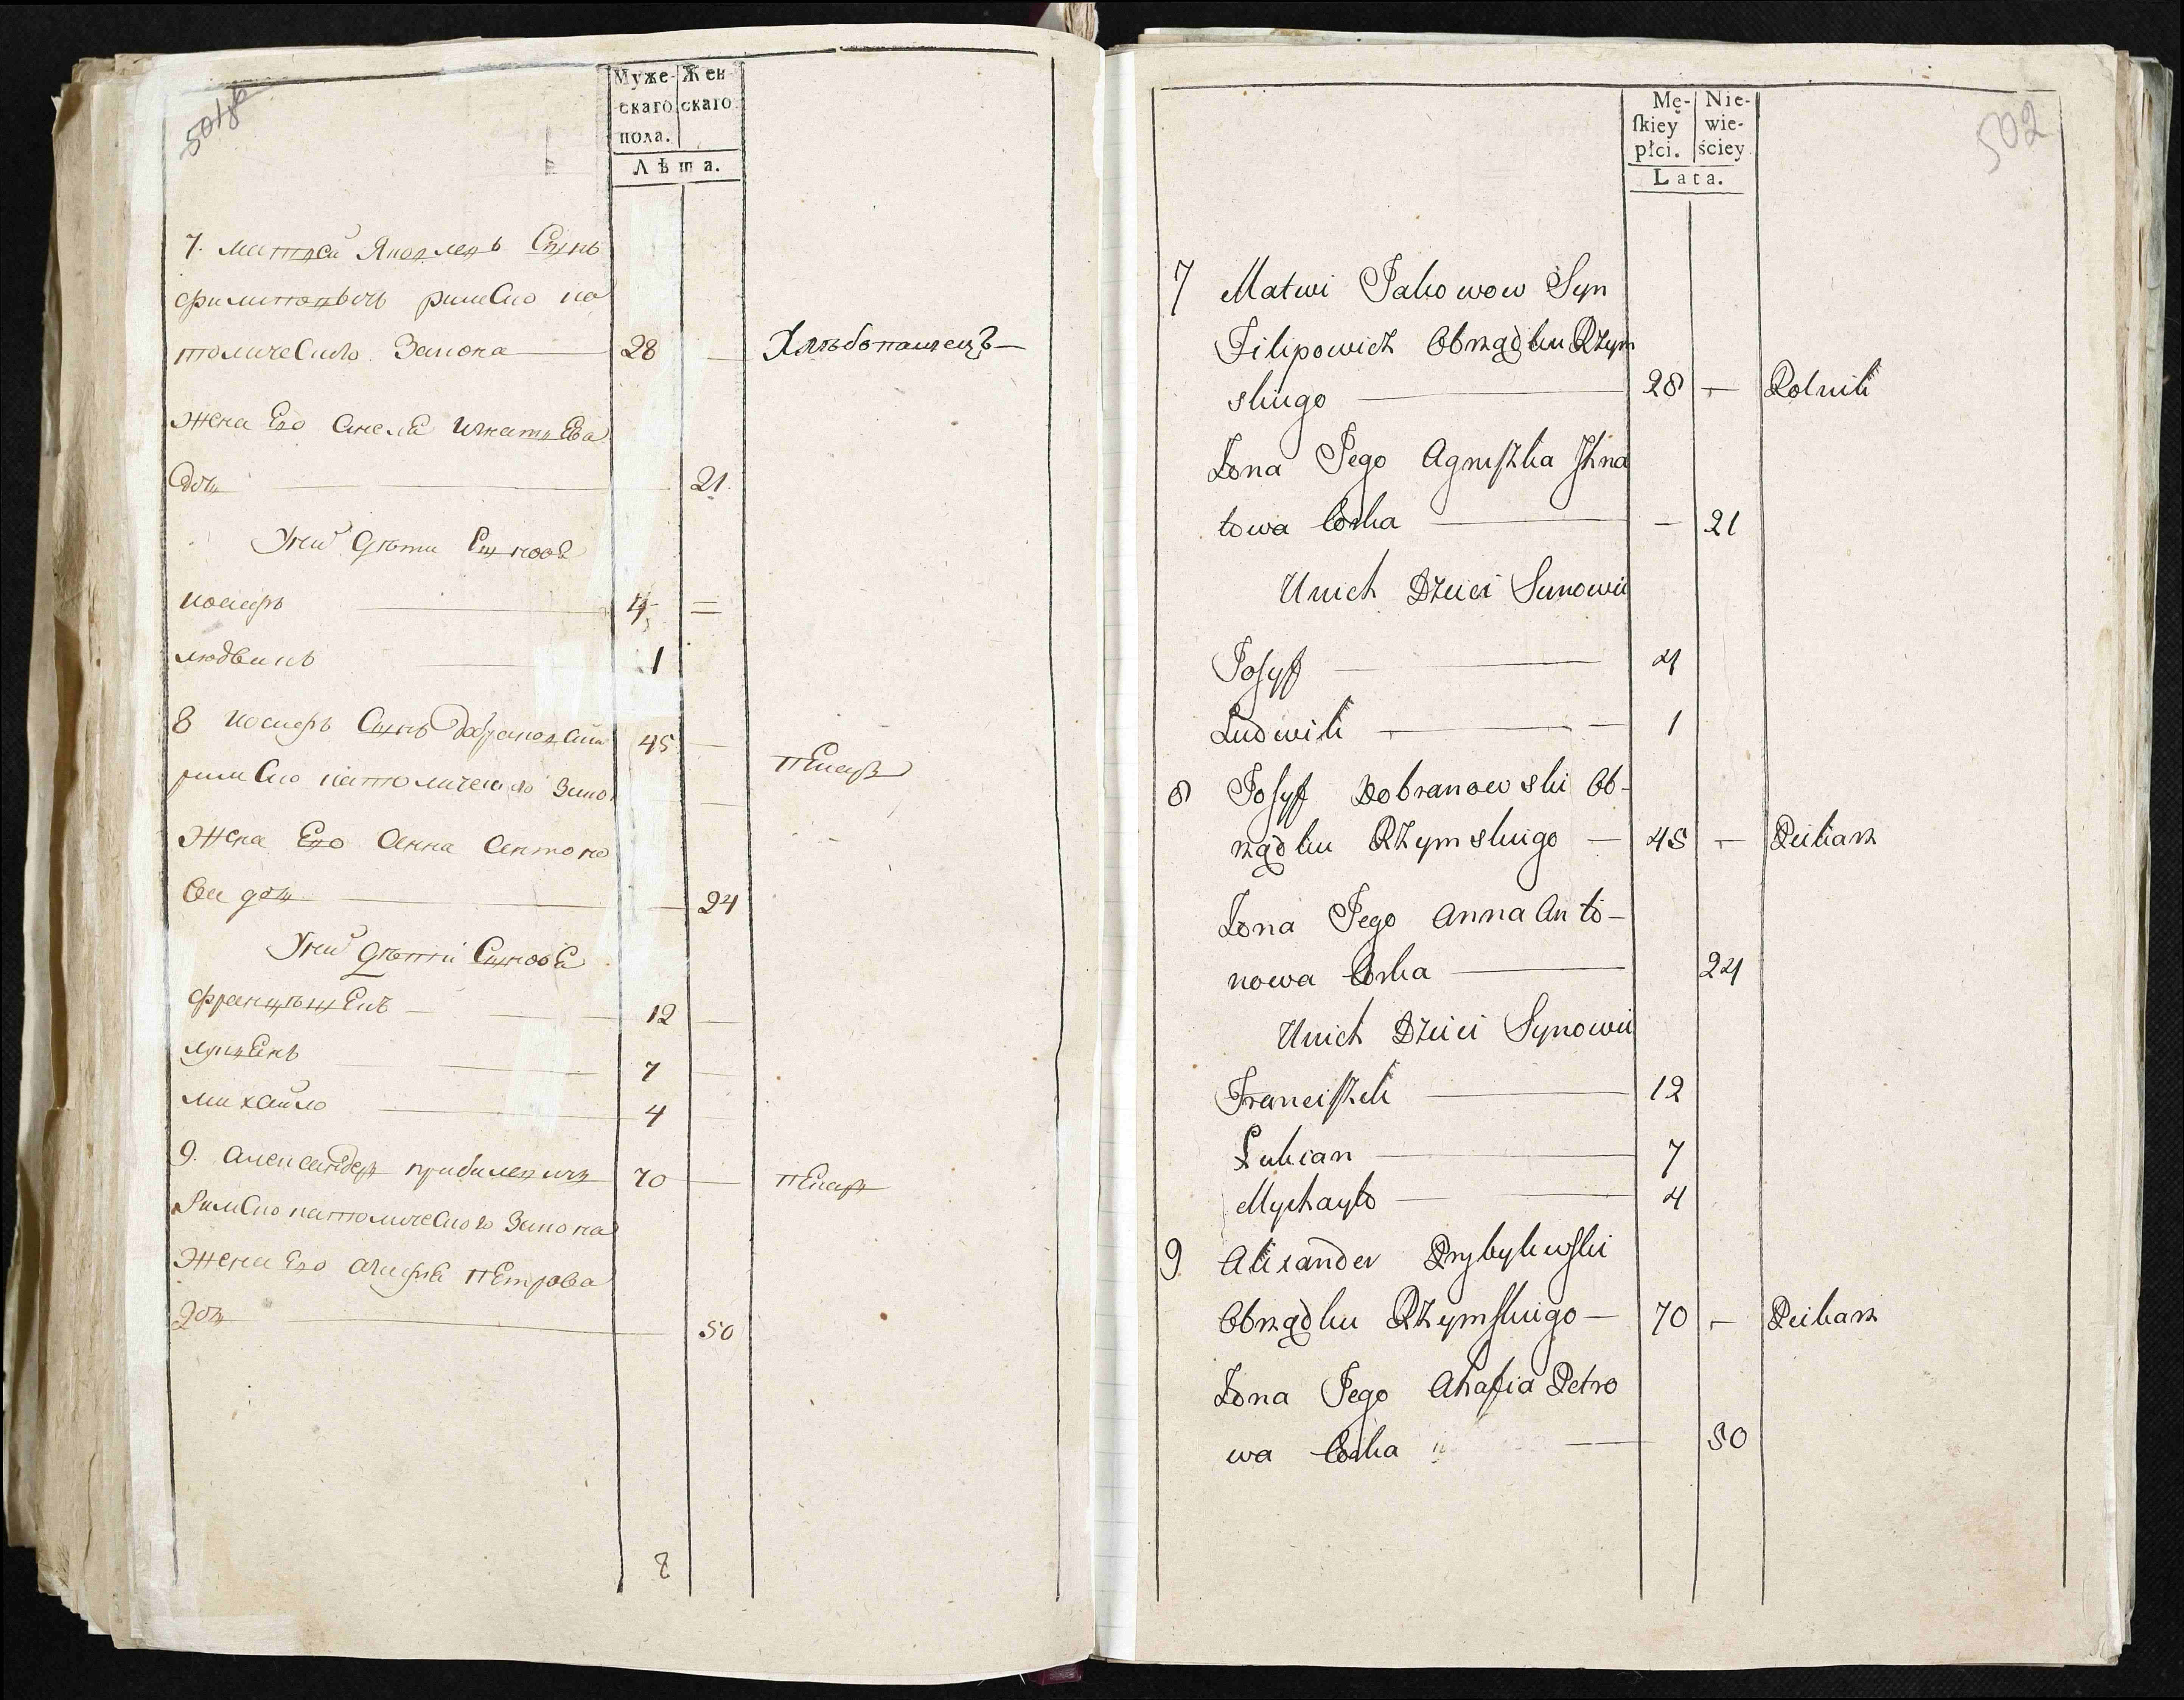 501 об
Муже- Жен-
скаго скаго
пола.
Лѣта.
7. матвей Яковлевъ Сынъ
филиповичъ римско ка
толическаго Закона — 28 — Хлѣбопашецъ —
жена Его Анеля Игнатьева
дочь — 21.
У них дѣти Сыновя
иосифъ — 4 =
людвикъ — 1
8 иосифъ Сынъ Добрановский 45 — пекарь
римско католическаго Зако.
жена Его Анна Антоно
ва дочь — 24
У них дѣти Сыновя
францышекъ — 12 —
лукьянъ — 7 —
михайло — 4 —
9. александеръ 70 — пекаръ
Римско католическаго Закона
жена Его агафия петрова
дочь — 50
8
502
Mę- Nie-
ſkiey wie-
płci. ściey
Lata.
7 Matwi Jakowow Syn
Filipowicz Obrządku Rzym
skiego — 28 — Rolnik
Żona Jego Agniſzka Ihna
towa Corka — — 21
Unich Dzieci Synowie
Joſyf — 4
Ludwik — — 1
8 Joſyf Dobranowski Ob-
rządku Rzymskiego — 45 — Peikarz
Żona Jego Anna Anto-
nowa Corka — 24
Unich Dzieci Synowie
Franciſzek — 12
Łukian — 7
Mychayło — 4
9 Alixander Przybylewſki
Obrządku Rzymſkiego — 70 — Peikarz
Żona Jego Ahafia Petro
wa Corka — 50